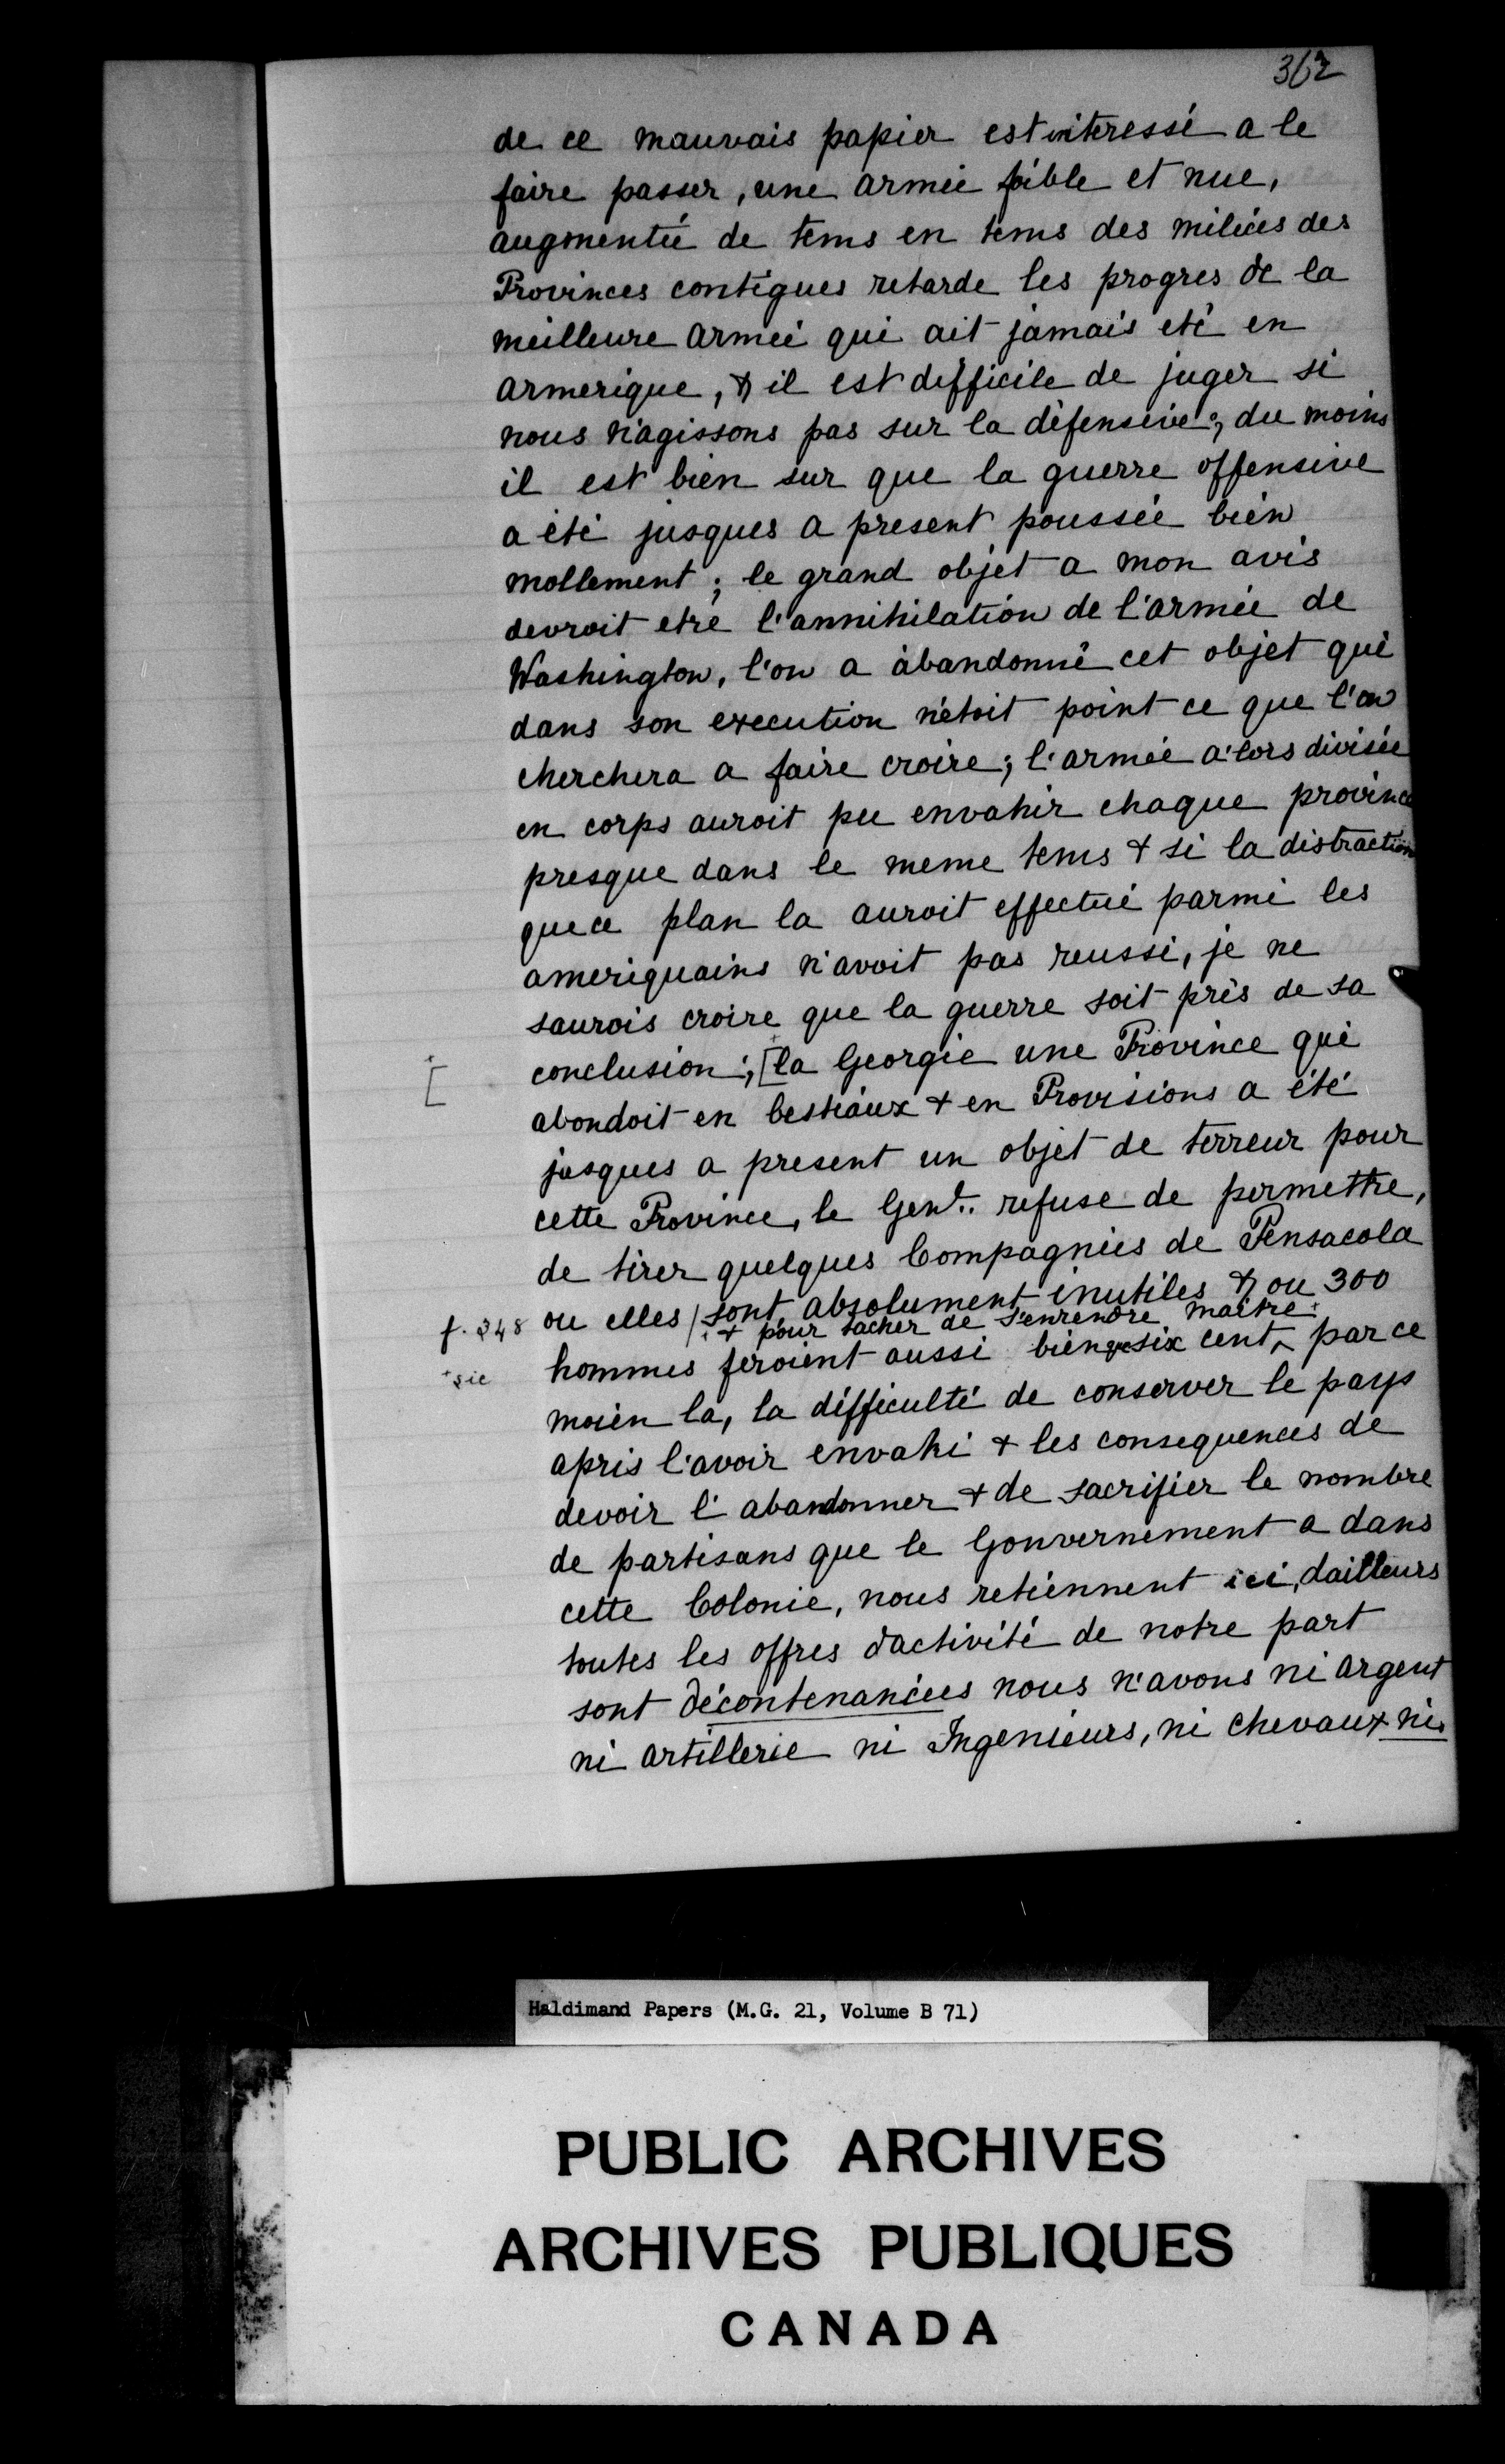 362
de ce mauvais papier est interessé a le
faire passer, une armée foible et nue,
augmentée de tems en tems des milices des
Provinces contigues retarde les progres de la
meilleure armée qui ait jamais eté en
armerique, & il est difficile de juger si
nous n'agissons pas sur la défensive; du moins
il est bien sur que la guerre offensive
a été jusques a present poussée bien
mollement; le grand objet a mon avis
devroit etre l'annihilation de l'armée de
Washington, l'on a abandonné cet objet qui
dans son execution n'étoit point ce que l'on
cherchera a faire croire; l'armée a'lors divisée
en corps auroit pu envahir chaque province
presque dans le meme tems & si la distraction
que ce plan la auroit effectué parmi les
ameriquains n'avoit pas reussi, je ne
saurois croire que la guerre soit près de sa
+ [ conclusion; +[la Georgie une Province qui
abondoit en bestiaux & en Provisions a été
jusques a present un objet de terreur pour
cette Province, le Genl.. refuse de permettre,
de tirer quelques Compagnies de Pensacola
f. 348 ou elles / sont absolument inutiles & ou 300
& pour tacher de s'enrendre maitre +
+sic hommes feroient aussi bien que six cent ^ par ce
moien la, la difficulté de conserver le pays
apris l'avoir envahi & les consequences de
devoir l'abandonner & de sacrifier le nombre
de partisans que le Gouvernement a dans
cette Colonie, nous retiennent ici, dailleurs
toutes les offres dactivité de notre part
sont décontenancées nous n'avons ni argent
ni artillerie ni Ingenieurs, ni chevaux ni
Haldimand Papers (M.G. 21, Volume B 71)
PUBLIC ARCHIVES
ARCHIVES PUBLIQUES
CANADA